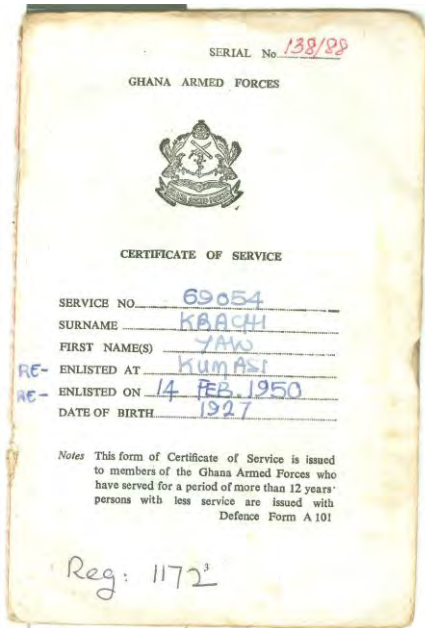 SERIAL No 138/88
GHANA ARMED FORCES
CERTIFICATE OF SERVICE
SERVICE NO 69054
SURNAME KRACHI
FIRST NAME(S) YAW
RE- ENLISTED AT KUMASI
RE- ENLISTED ON 14 FEB. 1950
DATE OF BIRTH 1927
Notes This form of Certificate of Service is issued
to members of the Ghana Armed Forces who
have served for a period of more than 12 years
persons with less service are issued with
Defence Form A 101
Reg: 1172